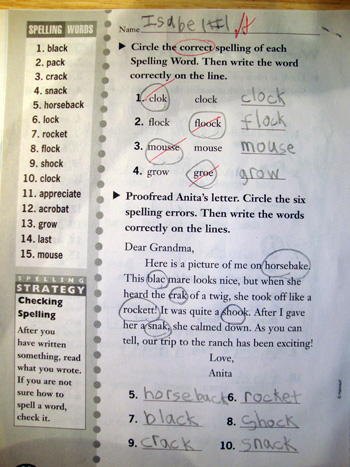 SPELLING WORDS
1. black
2. pack
3. crack
4. snack
5. horseback
6. lock
7. rocket
8. flock
9. shock
10. clock
11. appreciate
12. acrobat
13. grow
14. last
15. mouse
SPELLING
STRATEGY
Checking
Spelling
After you
have written
something, read
what you wrote.
If you are not
sure how to
spell a word,
check it.
Name
Circle the correct spelling of each
Spelling Word. Then write the word
correctly on the line.
1. clok clock clock
2. flock floock flock
3. mousse mouse mouse
4. grow groe grow
Proofread Anita's letter. Circle the six
spelling errors. Then write the words
correctly on the lines.
Dear Grandma,
Here is a picture of me on horsebake.
This blac mare looks nice, but when she
heard the crak of a twig, she took off like a
rockett! It was quite a shook. After I gave
her a snak, she calmed down. As you can
tell, our trip to the ranch has been exciting!
Love,
Anita
5. horseback 6. rocket
7. black 8. shock
9. crack 10. snack